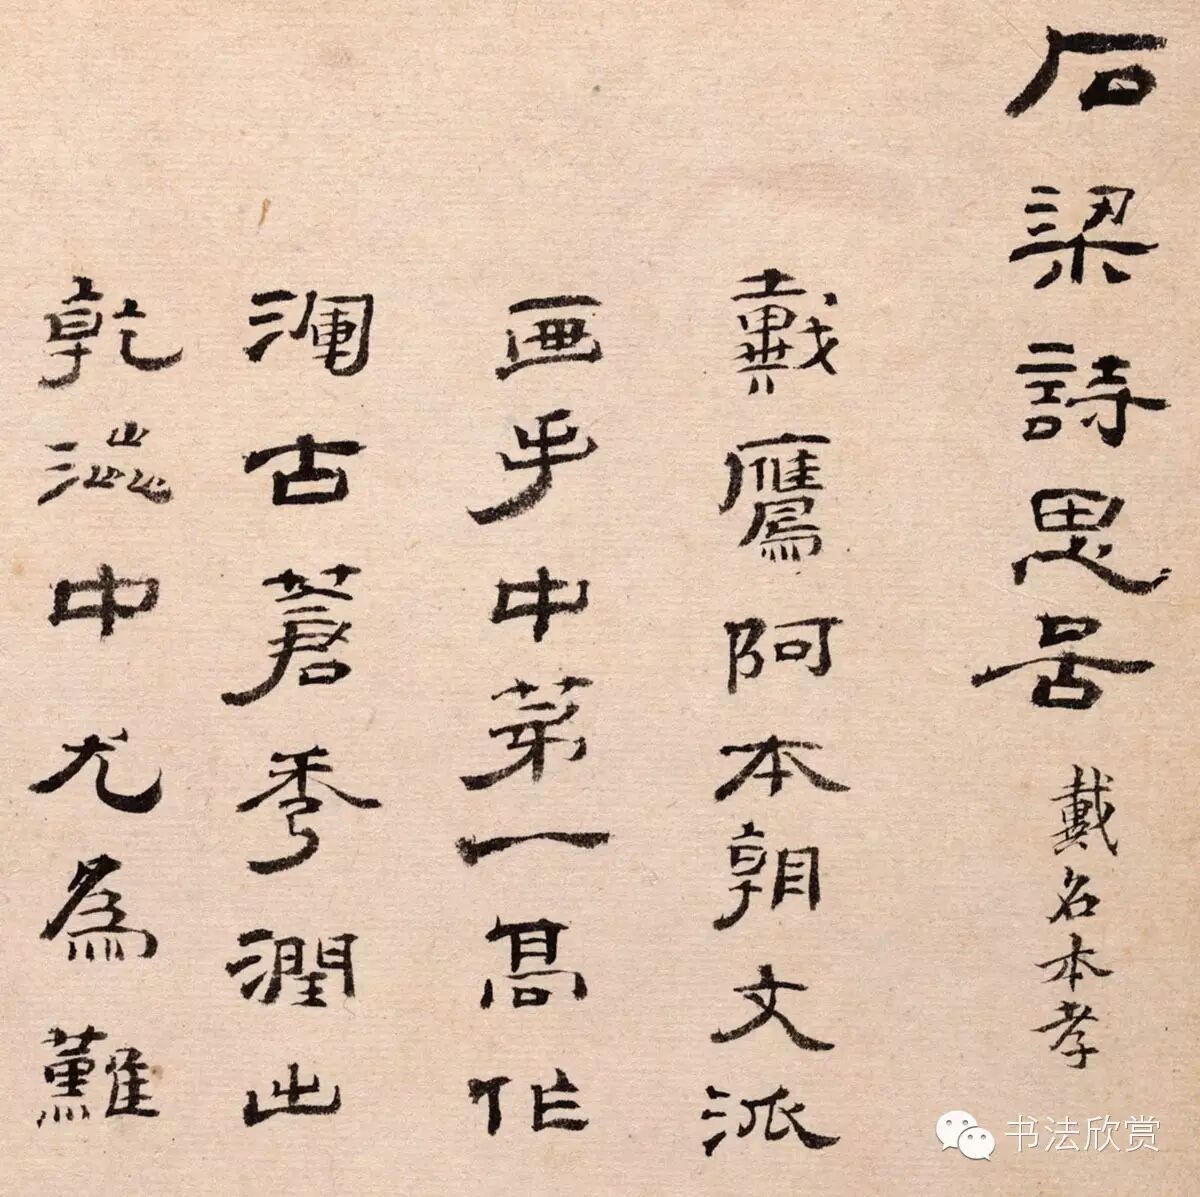 石梁詩思啚 戴名本孝
戴鷹阿本朝文派
画手中第一高作
渾古蒼秀潤出
乾澁中尤為難
书法欣赏